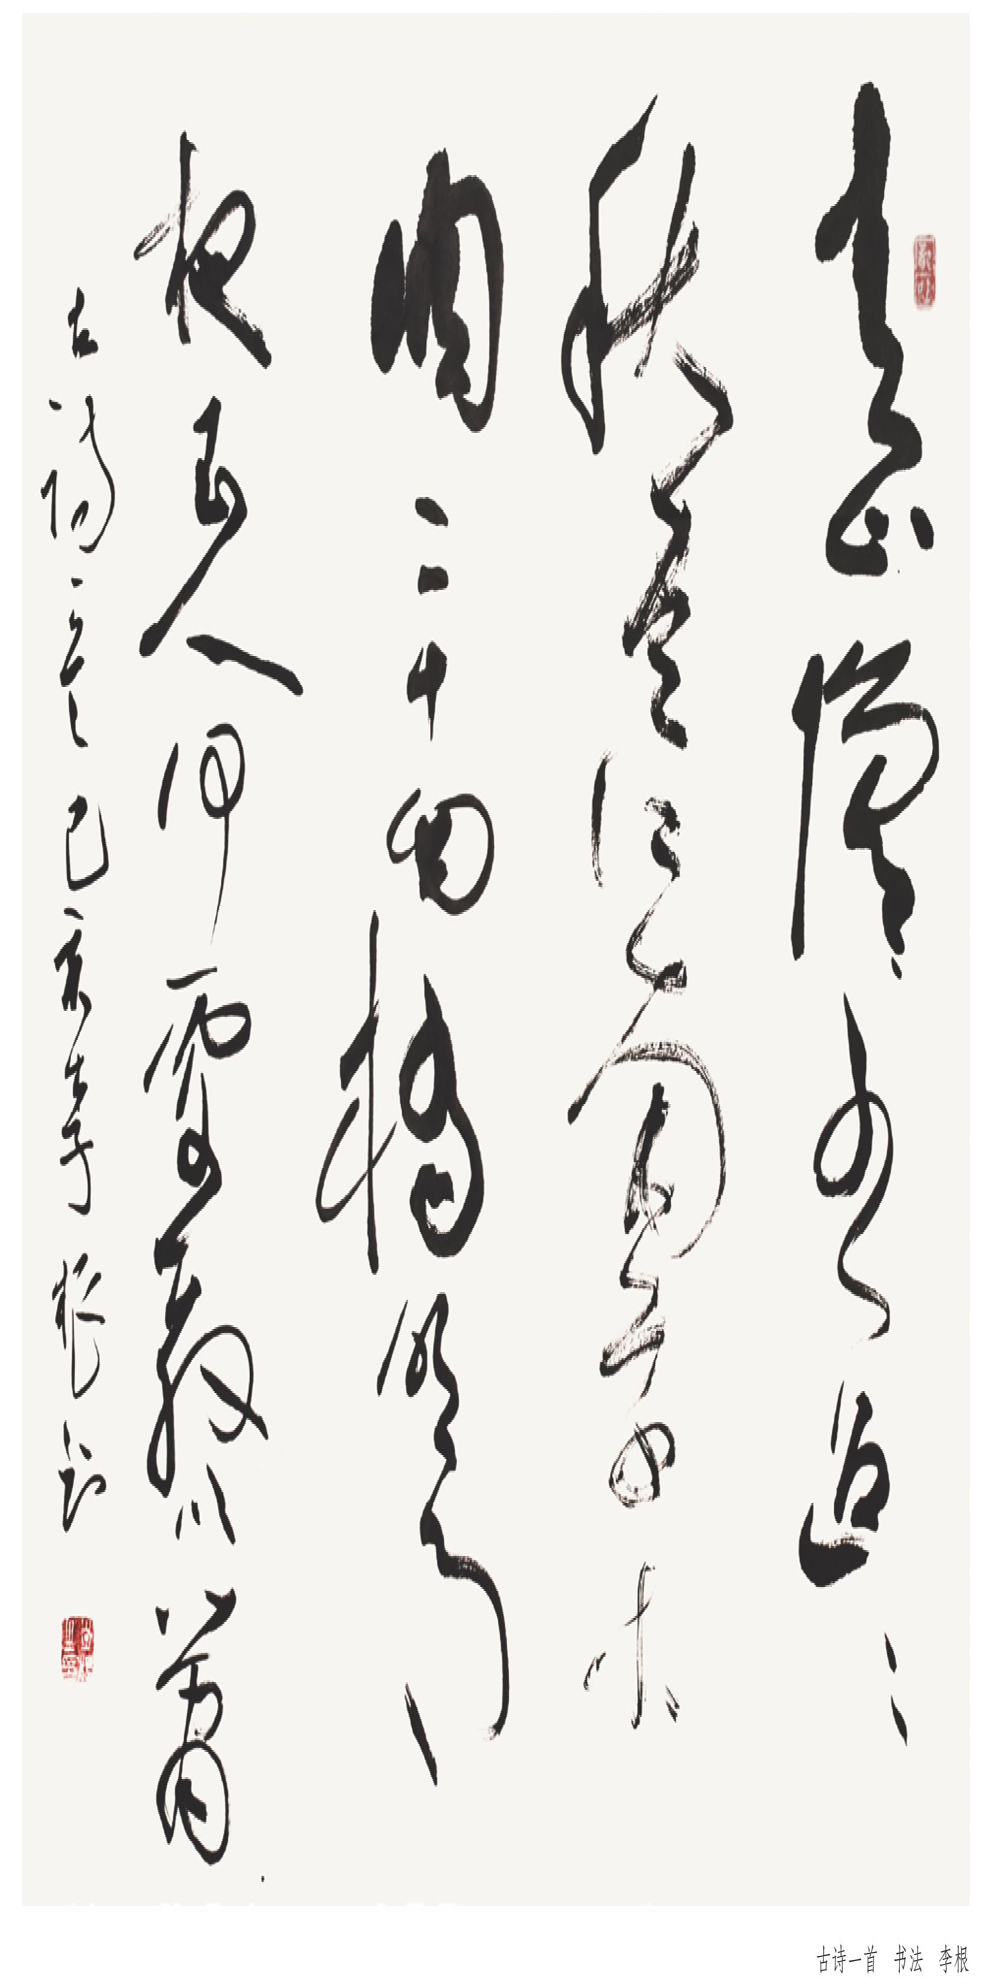 青山隱隱水迢迢
秋盡江南草木
凋二十四橋明月
夜玉人何處教吹簫
古詩一首己亥李根书
古诗一首 书法 李根